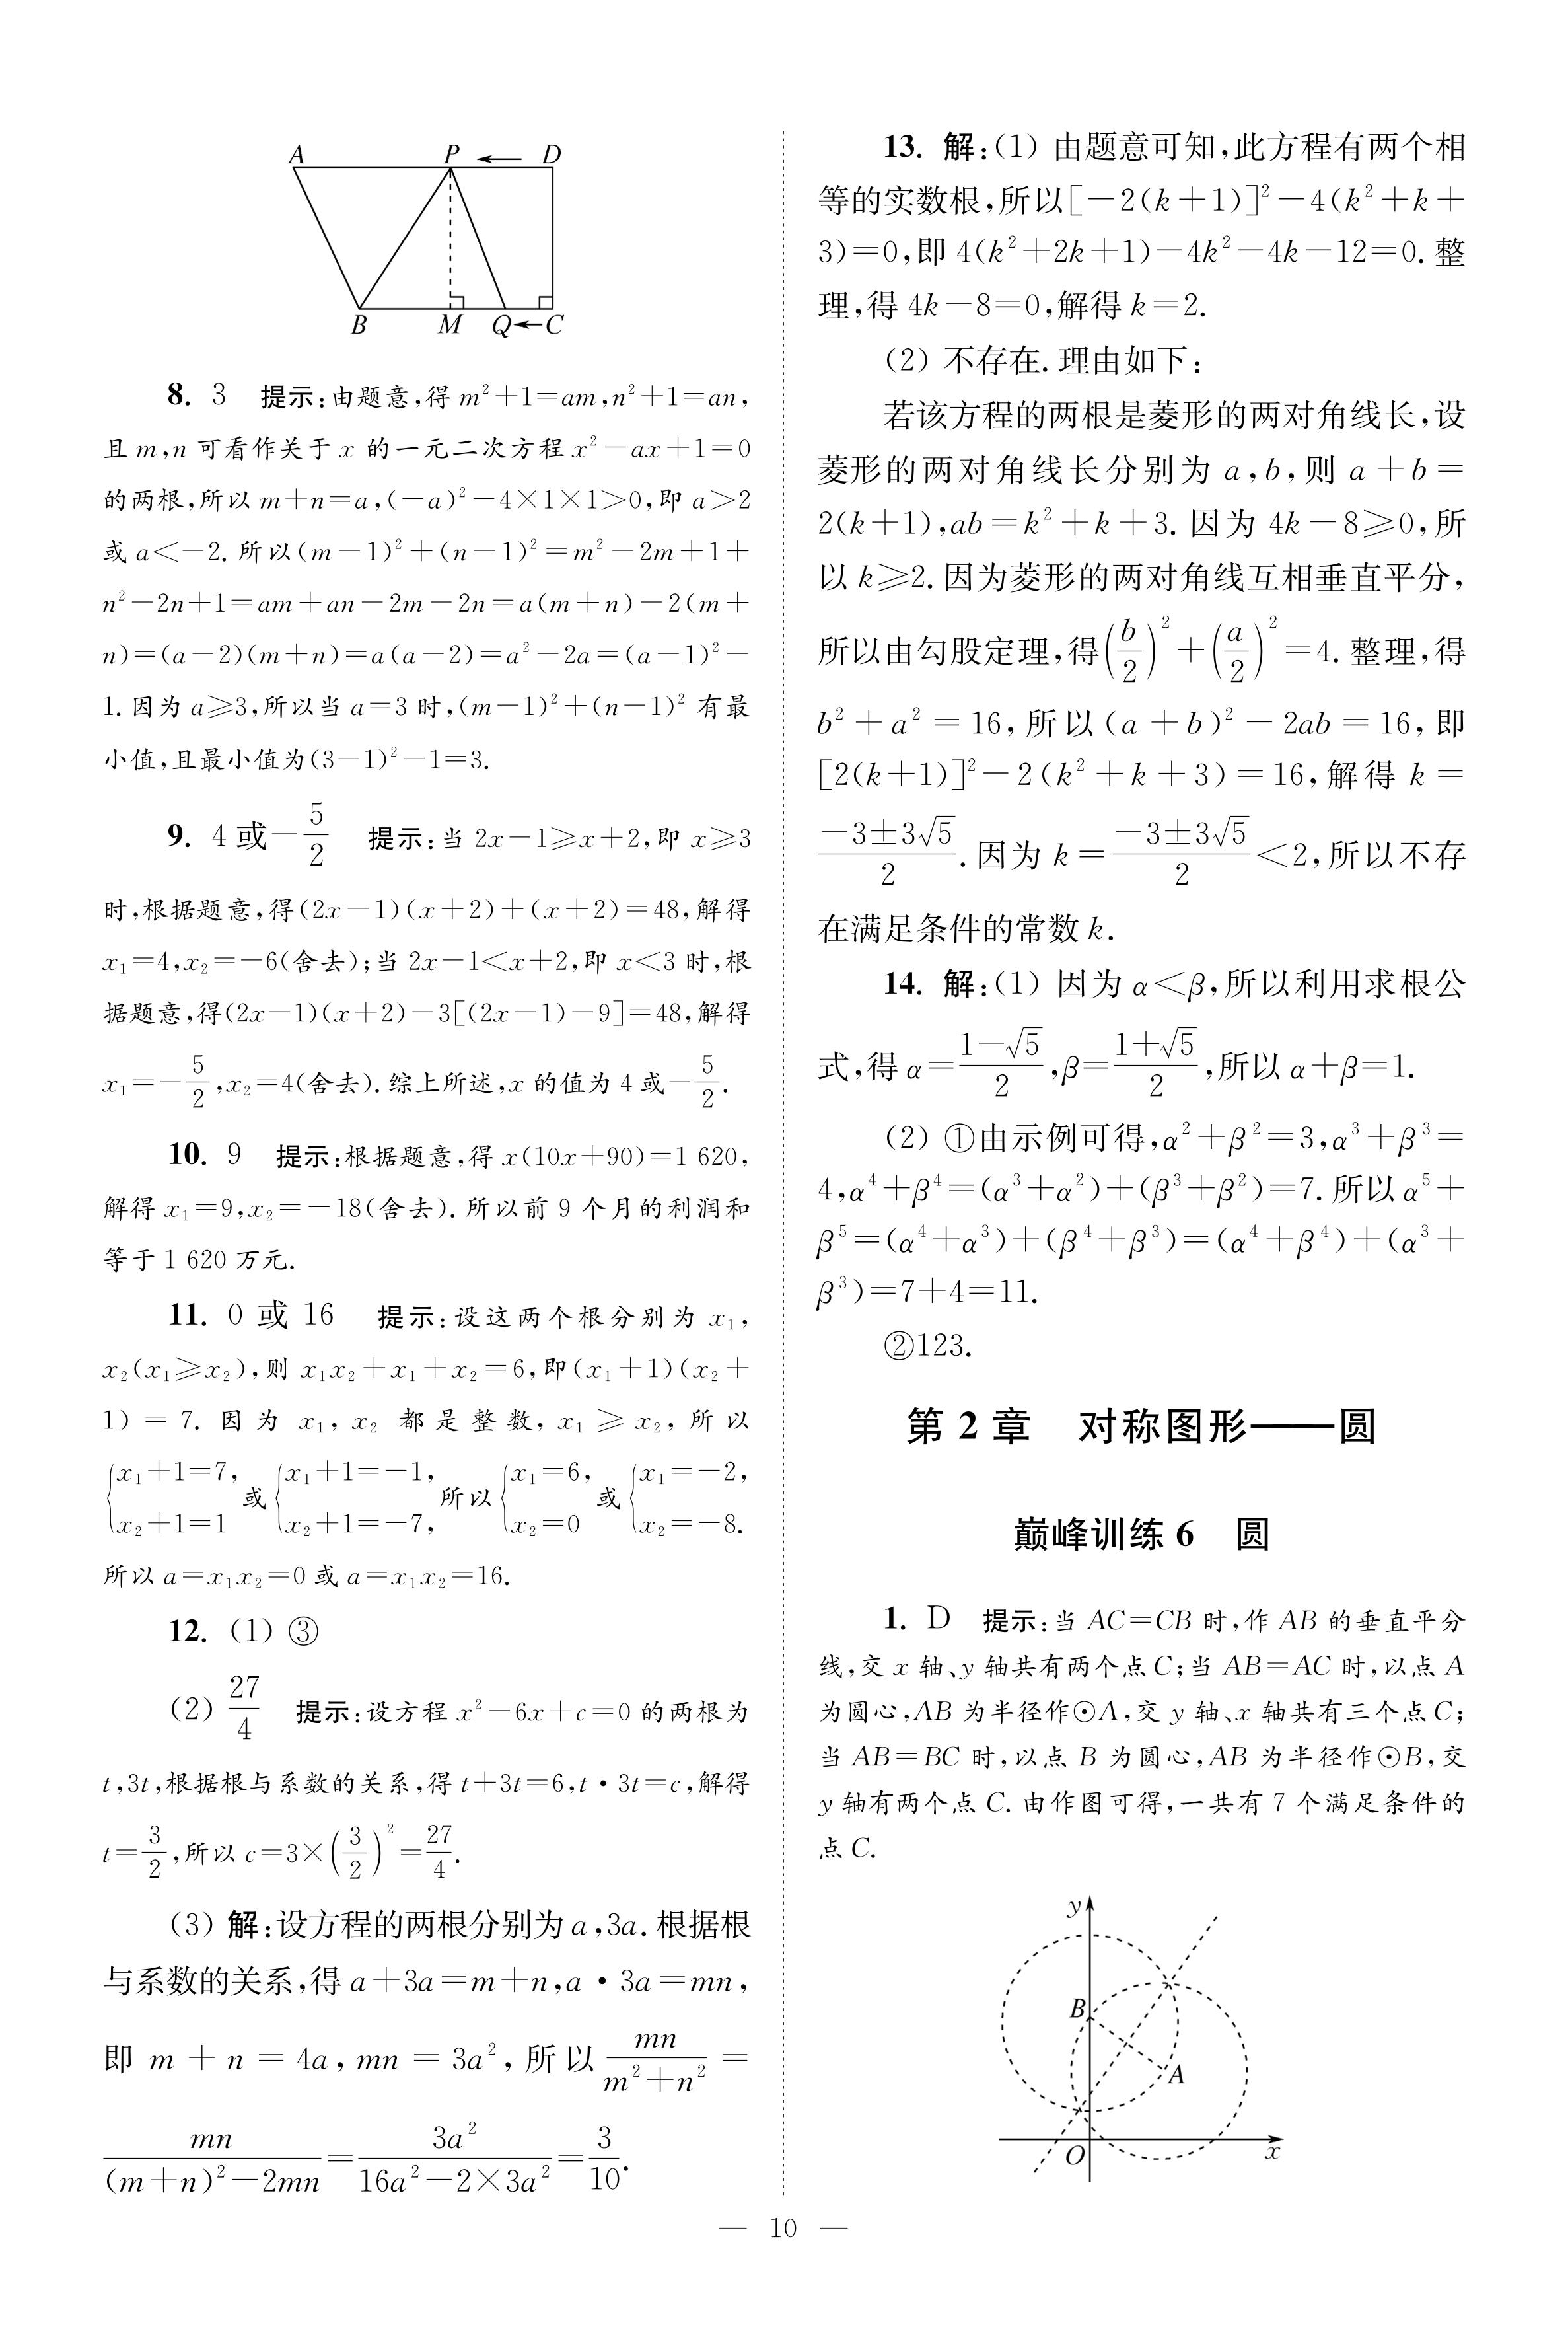 A P D
B M Q C
8. 3 提示:由题意,得 m²+1=am,n²+1=an,
且 m,n 可看作关于 x 的一元二次方程 x²-ax+1=0
的两根,所以 m+n=a,(-a)²-4×1×1>0,即 a>2
或 a<-2. 所以(m-1)²+(n-1)²=m²-2m+1+
n²-2n+1=am+an-2m-2n=a(m+n)-2(m+
n)=(a-2)(m+n)=a(a-2)=a²-2a=(a-1)²-
1. 因为 a≥3,所以当 a=3 时,(m-1)²+(n-1)² 有最
小值,且最小值为(3-1)²-1=3.
9. 4 或-5/2 提示:当 2x-1≥x+2,即 x≥3
时,根据题意,得(2x-1)(x+2)+(x+2)=48,解得
x₁=4,x₂=-6(舍去);当 2x-1<x+2,即 x<3 时,根
据题意,得(2x-1)(x+2)-3[(2x-1)-9]=48,解得
x₁=-5/2,x₂=4(舍去). 综上所述,x 的值为 4 或-5/2.
10. 9 提示:根据题意,得 x(10x+90)=1 620,
解得 x₁=9,x₂=-18(舍去). 所以前 9 个月的利润和
等于 1 620 万元.
11. 0 或 16 提示:设这两个根分别为 x₁,
x₂(x₁≥x₂),则 x₁x₂+x₁+x₂=6,即(x₁+1)(x₂+
1)=7. 因为 x₁,x₂ 都是整数,x₁≥x₂,所以
{x₁+1=7, x₂+1=1 或{x₁+1=-1, x₂+1=-7, 所以{x₁=6, x₂=0 或{x₁=-2, x₂=-8.
所以 a=x₁x₂=0 或 a=x₁x₂=16.
12. (1) ③
(2) 27/4 提示:设方程 x²-6x+c=0 的两根为
t,3t,根据根与系数的关系,得 t+3t=6,t·3t=c,解得
t=3/2,所以 c=3×(3/2)²=27/4.
(3) 解:设方程的两根分别为 a,3a. 根据根
与系数的关系,得 a+3a=m+n,a·3a=mn,
即 m+n=4a,mn=3a²,所以 mn/(m²+n²)=
mn/((m+n)²-2mn)=3a²/(16a²-2×3a²)=3/10.
13. 解:(1) 由题意可知,此方程有两个相
等的实数根,所以[-2(k+1)]²-4(k²+k+
3)=0,即 4(k²+2k+1)-4k²-4k-12=0. 整
理,得 4k-8=0,解得 k=2.
(2) 不存在. 理由如下:
若该方程的两根是菱形的两对角线长,设
菱形的两对角线长分别为 a,b,则 a+b=
2(k+1),ab=k²+k+3. 因为 4k-8≥0,所
以 k≥2. 因为菱形的两对角线互相垂直平分,
所以由勾股定理,得(b/2)²+(a/2)²=4. 整理,得
b²+a²=16,所以(a+b)²-2ab=16,即
[2(k+1)]²-2(k²+k+3)=16,解得 k=
(-3±3√5)/2. 因为 k=(-3±3√5)/2<2,所以不存
在满足条件的常数 k.
14. 解:(1) 因为 α<β,所以利用求根公
式,得 α=(1-√5)/2,β=(1+√5)/2,所以 α+β=1.
(2) ①由示例可得,α²+β²=3,α³+β³=
4,α⁴+β⁴=(α³+α²)+(β³+β²)=7. 所以 α⁵+
β⁵=(α⁴+α³)+(β⁴+β³)=(α⁴+β⁴)+(α³+
β³)=7+4=11.
②123.
第 2 章 对称图形——圆
巅峰训练 6 圆
1. D 提示:当 AC=CB 时,作 AB 的垂直平分
线,交 x 轴、y 轴共有两个点 C;当 AB=AC 时,以点 A
为圆心,AB 为半径作⊙A,交 y 轴、x 轴共有三个点 C;
当 AB=BC 时,以点 B 为圆心,AB 为半径作⊙B,交
y 轴有两个点 C. 由作图可得,一共有 7 个满足条件的
点 C.
y
B
A
O x
— 10 —